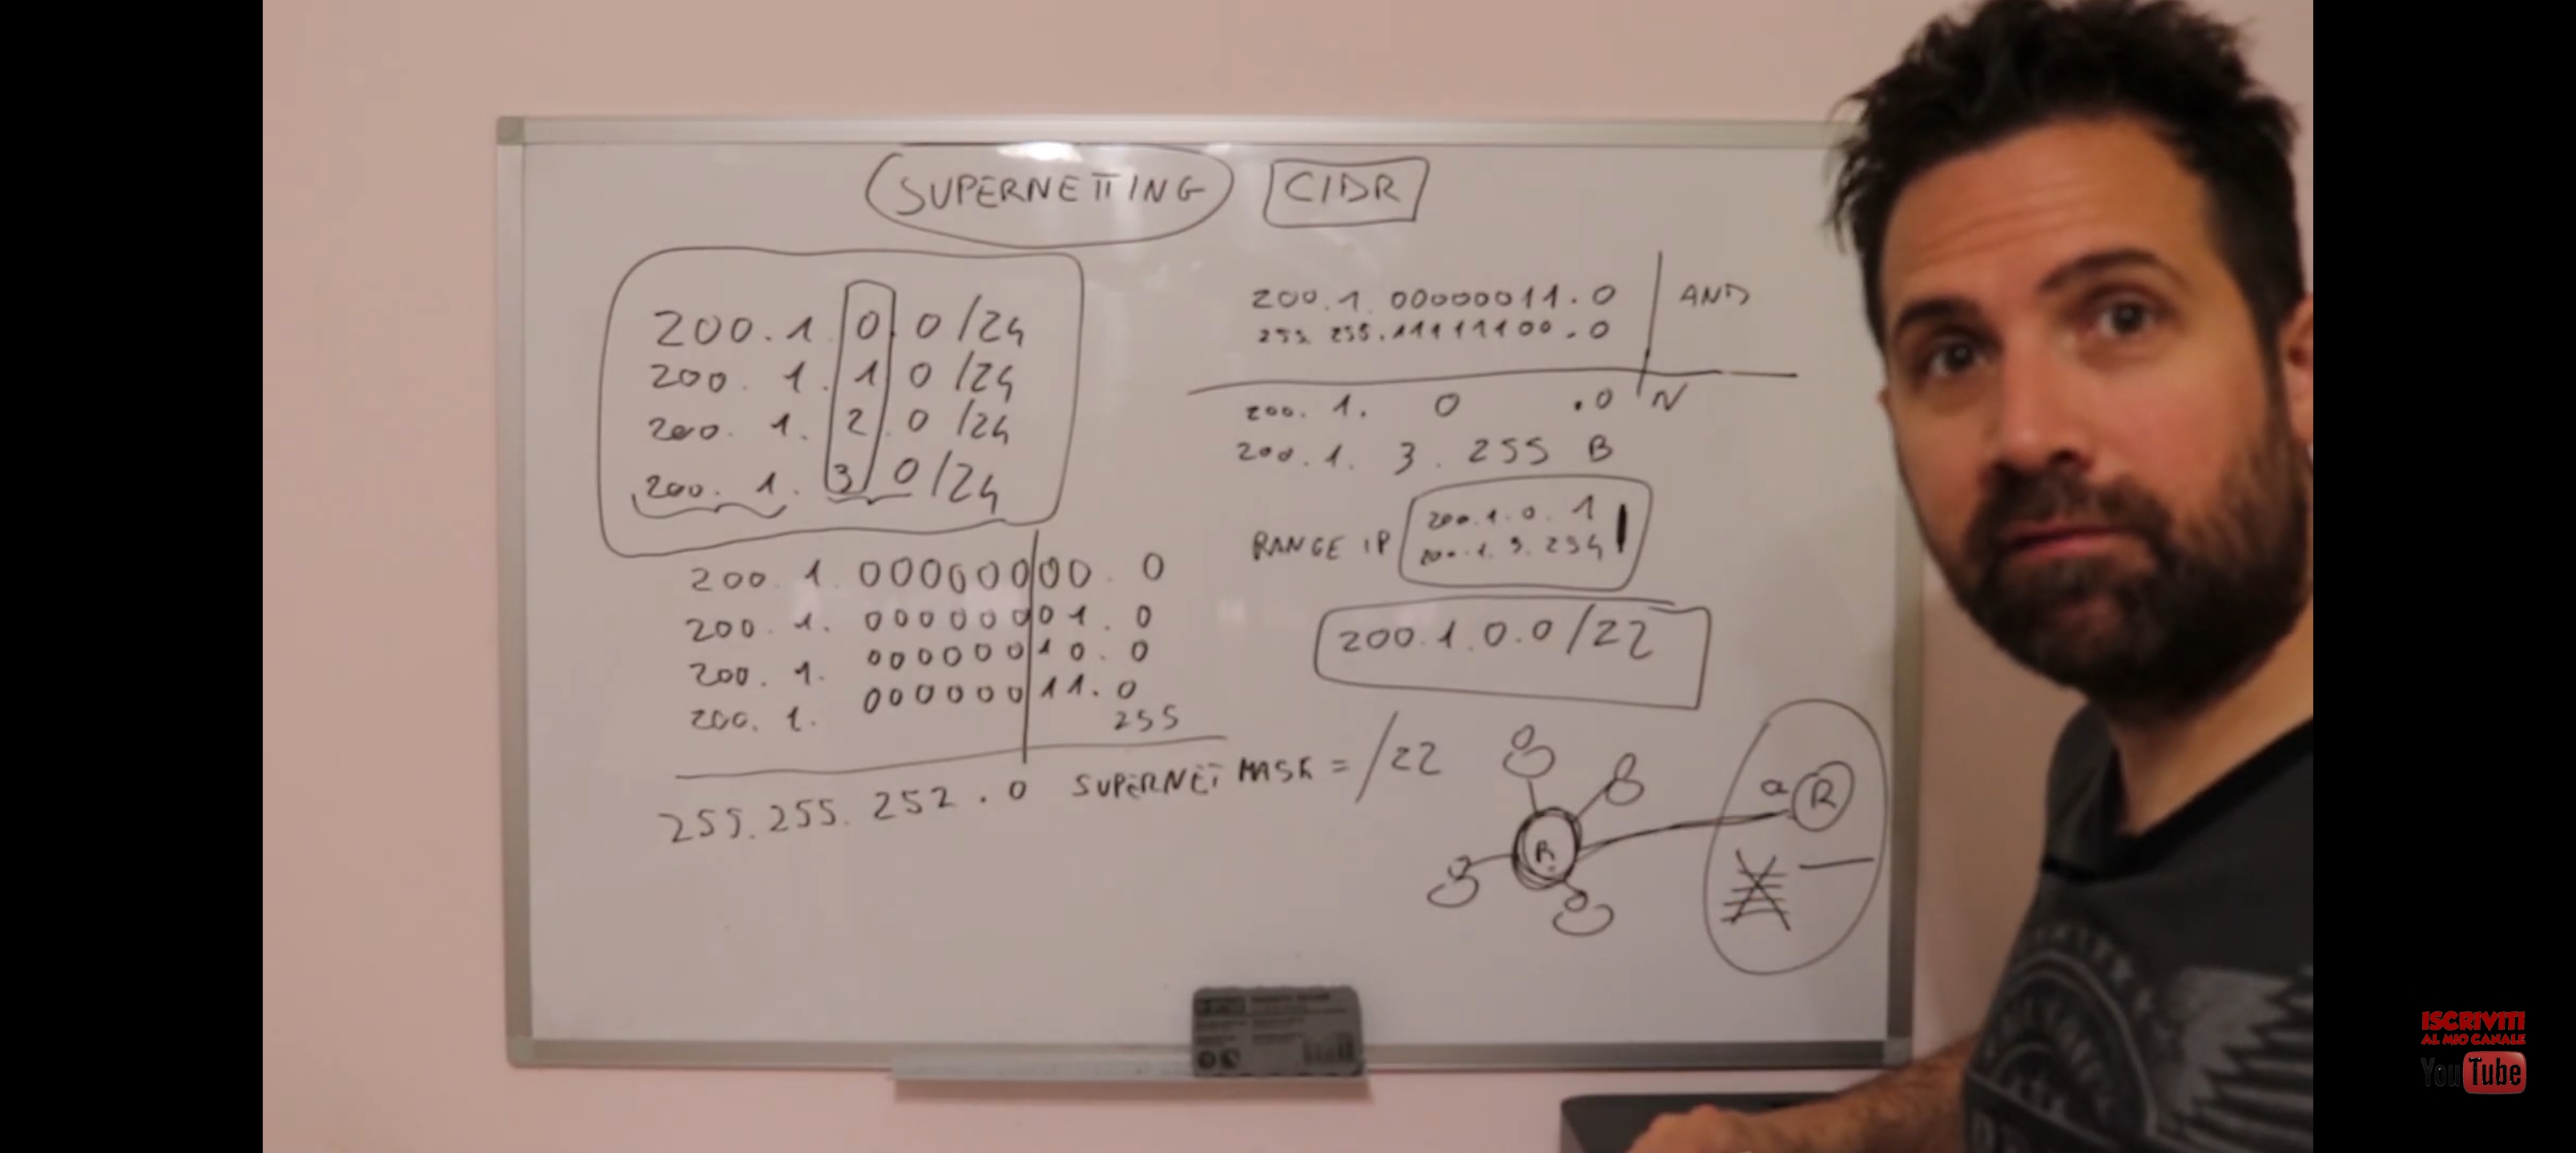 SUPERNETTING CIDR
200.1.0.0/24
200.1.1.0/24
200.1.2.0/24
200.1.3.0/24
200.1.00000000.0
200.1.00000001.0
200.1.00000010.0
200.1.00000011.0
255
255.255.252.0 SUPERNET MASK = /22
200.1.00000011.0 AND
255.255.11111100.0
200.1.0.0 N
200.1.3.255 B
RANGE IP 200.1.0.1
200.1.3.254
200.1.0.0/22
R
a R
ISCRIVITI
AL MIO CANALE
YouTube